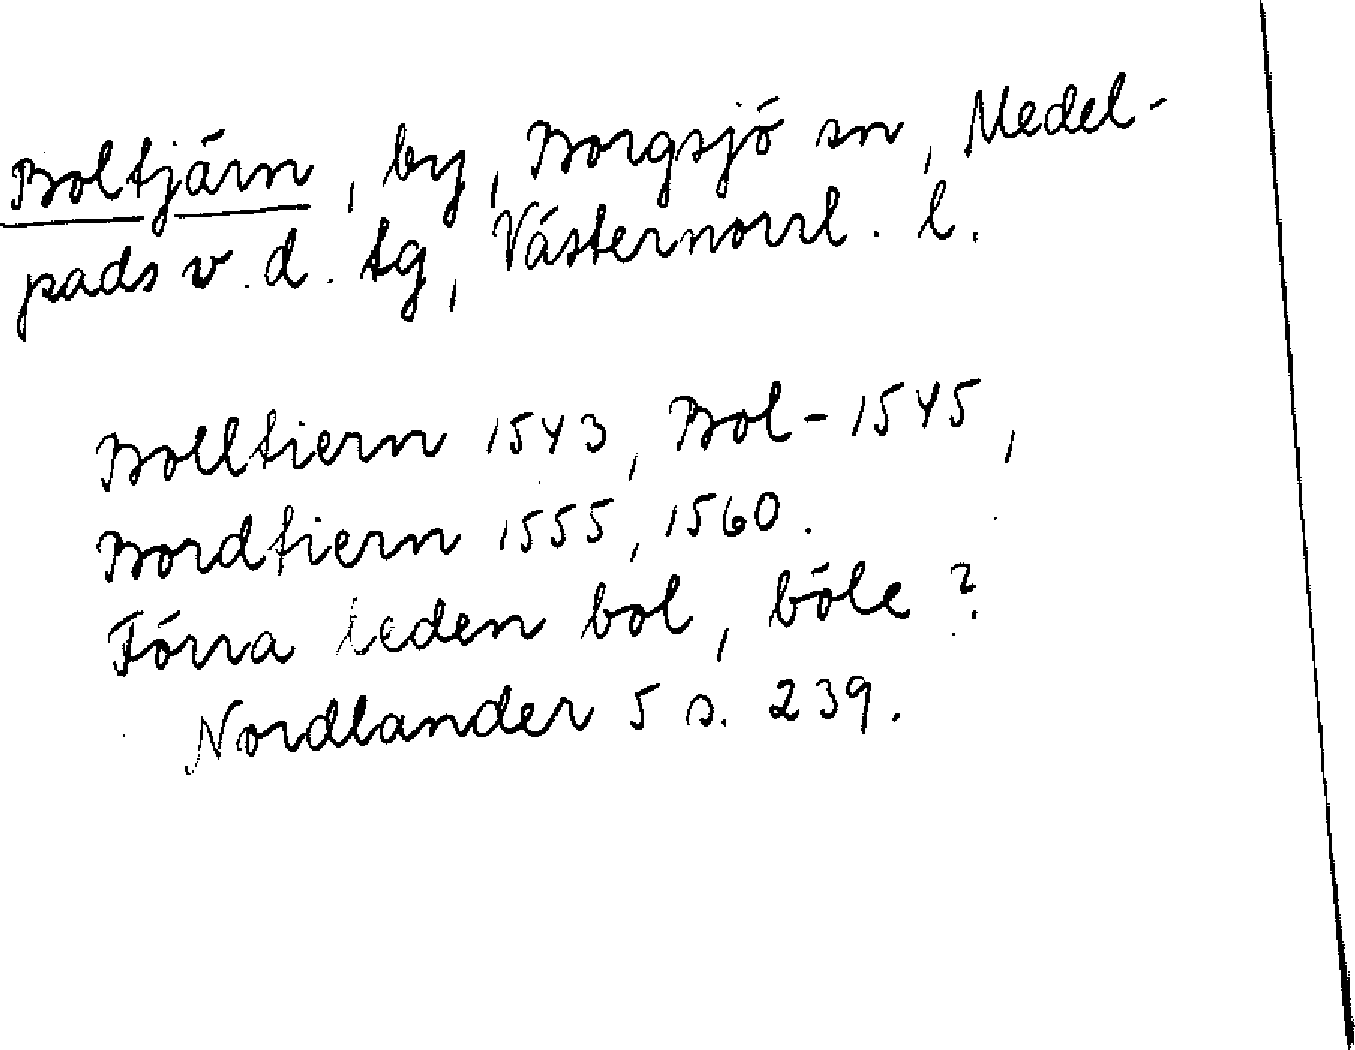 Boltjärn, by, Borgsjö sn, Medel-
pads v. d. tg, Västernorrl. l.
Bolltiern 1543, Bol- 1545,
Bordtiern 1555, 1560.
Förra leden bol, böle?
Nordlander 5 s. 239.